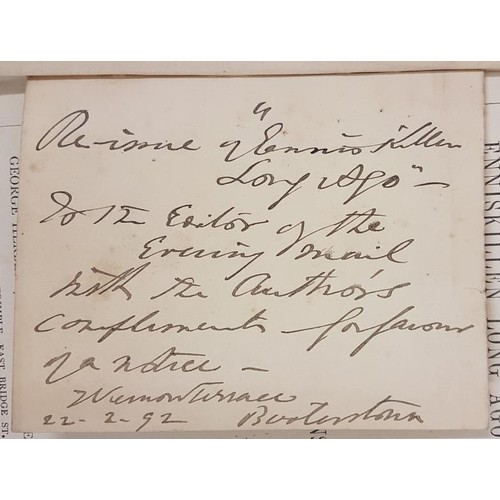 Re-issue of "Enniskillen
Long Ago" -
To the Editor of the
Evening Mail
With the Author's
compliments - for favour
of a notice -
Vernon Terrace
22-2-92 Booterstown
ENNISKILLEN LONG AGO
GEORGE
EAST BRIDGE ST.